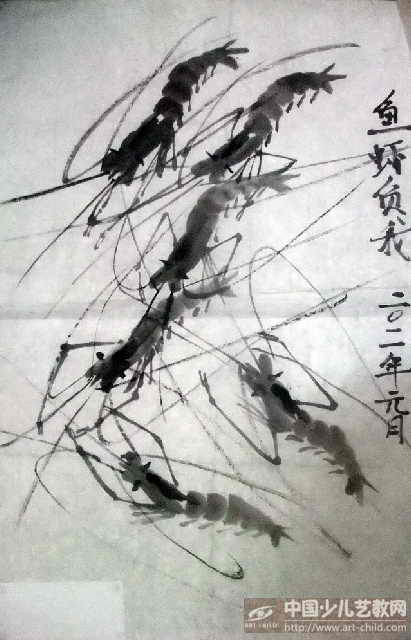 鱼虾负我
二〇一二年元月
中国少儿艺教网
http://www.art-child.com